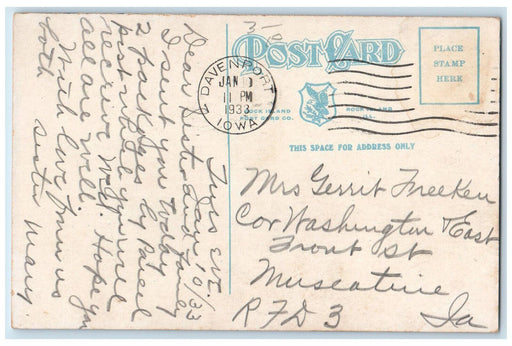 Tues eve/
Jan 10/33
Dear Sister and family
I sent you today
2 packages by Parcel
post hope you will
receive O.K. Hope you
all are well.
With love from us
both sister Mary
3-0
POST CARD
DAVENPORT
JAN
11 PM
1933
IOWA
ROCK ISLAND
POST CARD CO.
ROCK ISLAND
ILL.
PLACE
STAMP
HERE
THIS SPACE FOR ADDRESS ONLY
Mrs Gerrit Freeken
Cor Washington & East
Front St
Muscatine
RFD 3 Ia